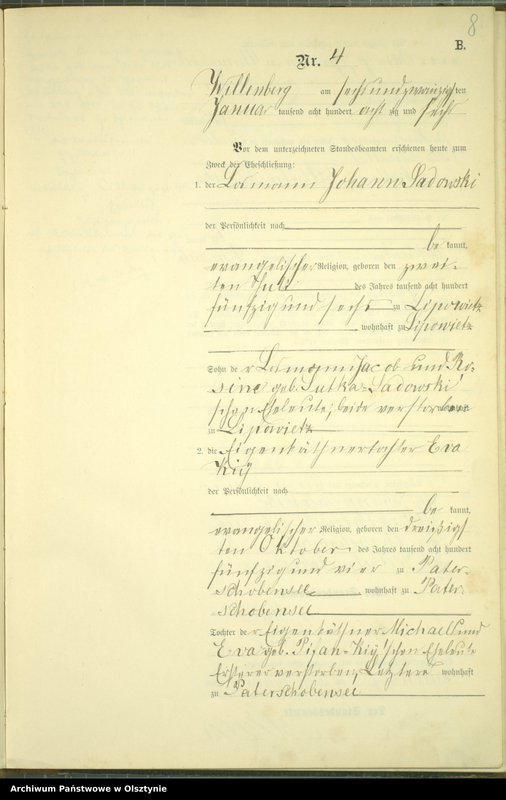 8
B.
Nr. 4
Willenberg am sechsundzwanzigsten
Januar tausend acht hundert acht zig und sechs
Vor dem unterzeichneten Standesbeamten erschienen heute zum
Zweck der Eheschließung:
1. der Losmann Johann Sadowski
der Persönlichkeit nach
be kannt,
evangelischer Religion, geboren den zwei-
ten Juli des Jahres tausend acht hundert
fünfzig und sechs zu Lipowietz
wohnhaft zu Lipowietz
Sohn de r Losmann Jacob und Ro-
sine geb. Sutka-Sadowski
schen Eheleute, beide verstorben
zu Lipowietz
2. die Eigenkäthnertochter Eva
Kiy
der Persönlichkeit nach
be kannt,
evangelischer Religion, geboren den dreißigs
ten Oktober des Jahres tausend acht hundert
fünfzig und vier zu Pater-
schobensee wohnhaft zu Pater-
schobensee
Tochter de r Eigenkäthner Michael und
Eva geb. Pijan-Kiy'schen Eheleute
Ersterer verstorben, Letztere wohnhaft
zu Paterschobensee
Archiwum Państwowe w Olsztynie